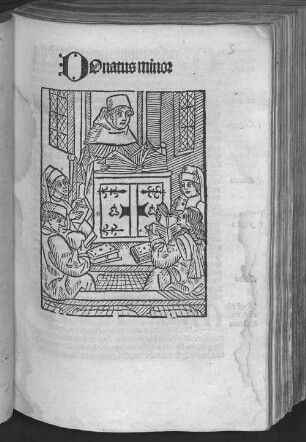 DOnatus minor
3